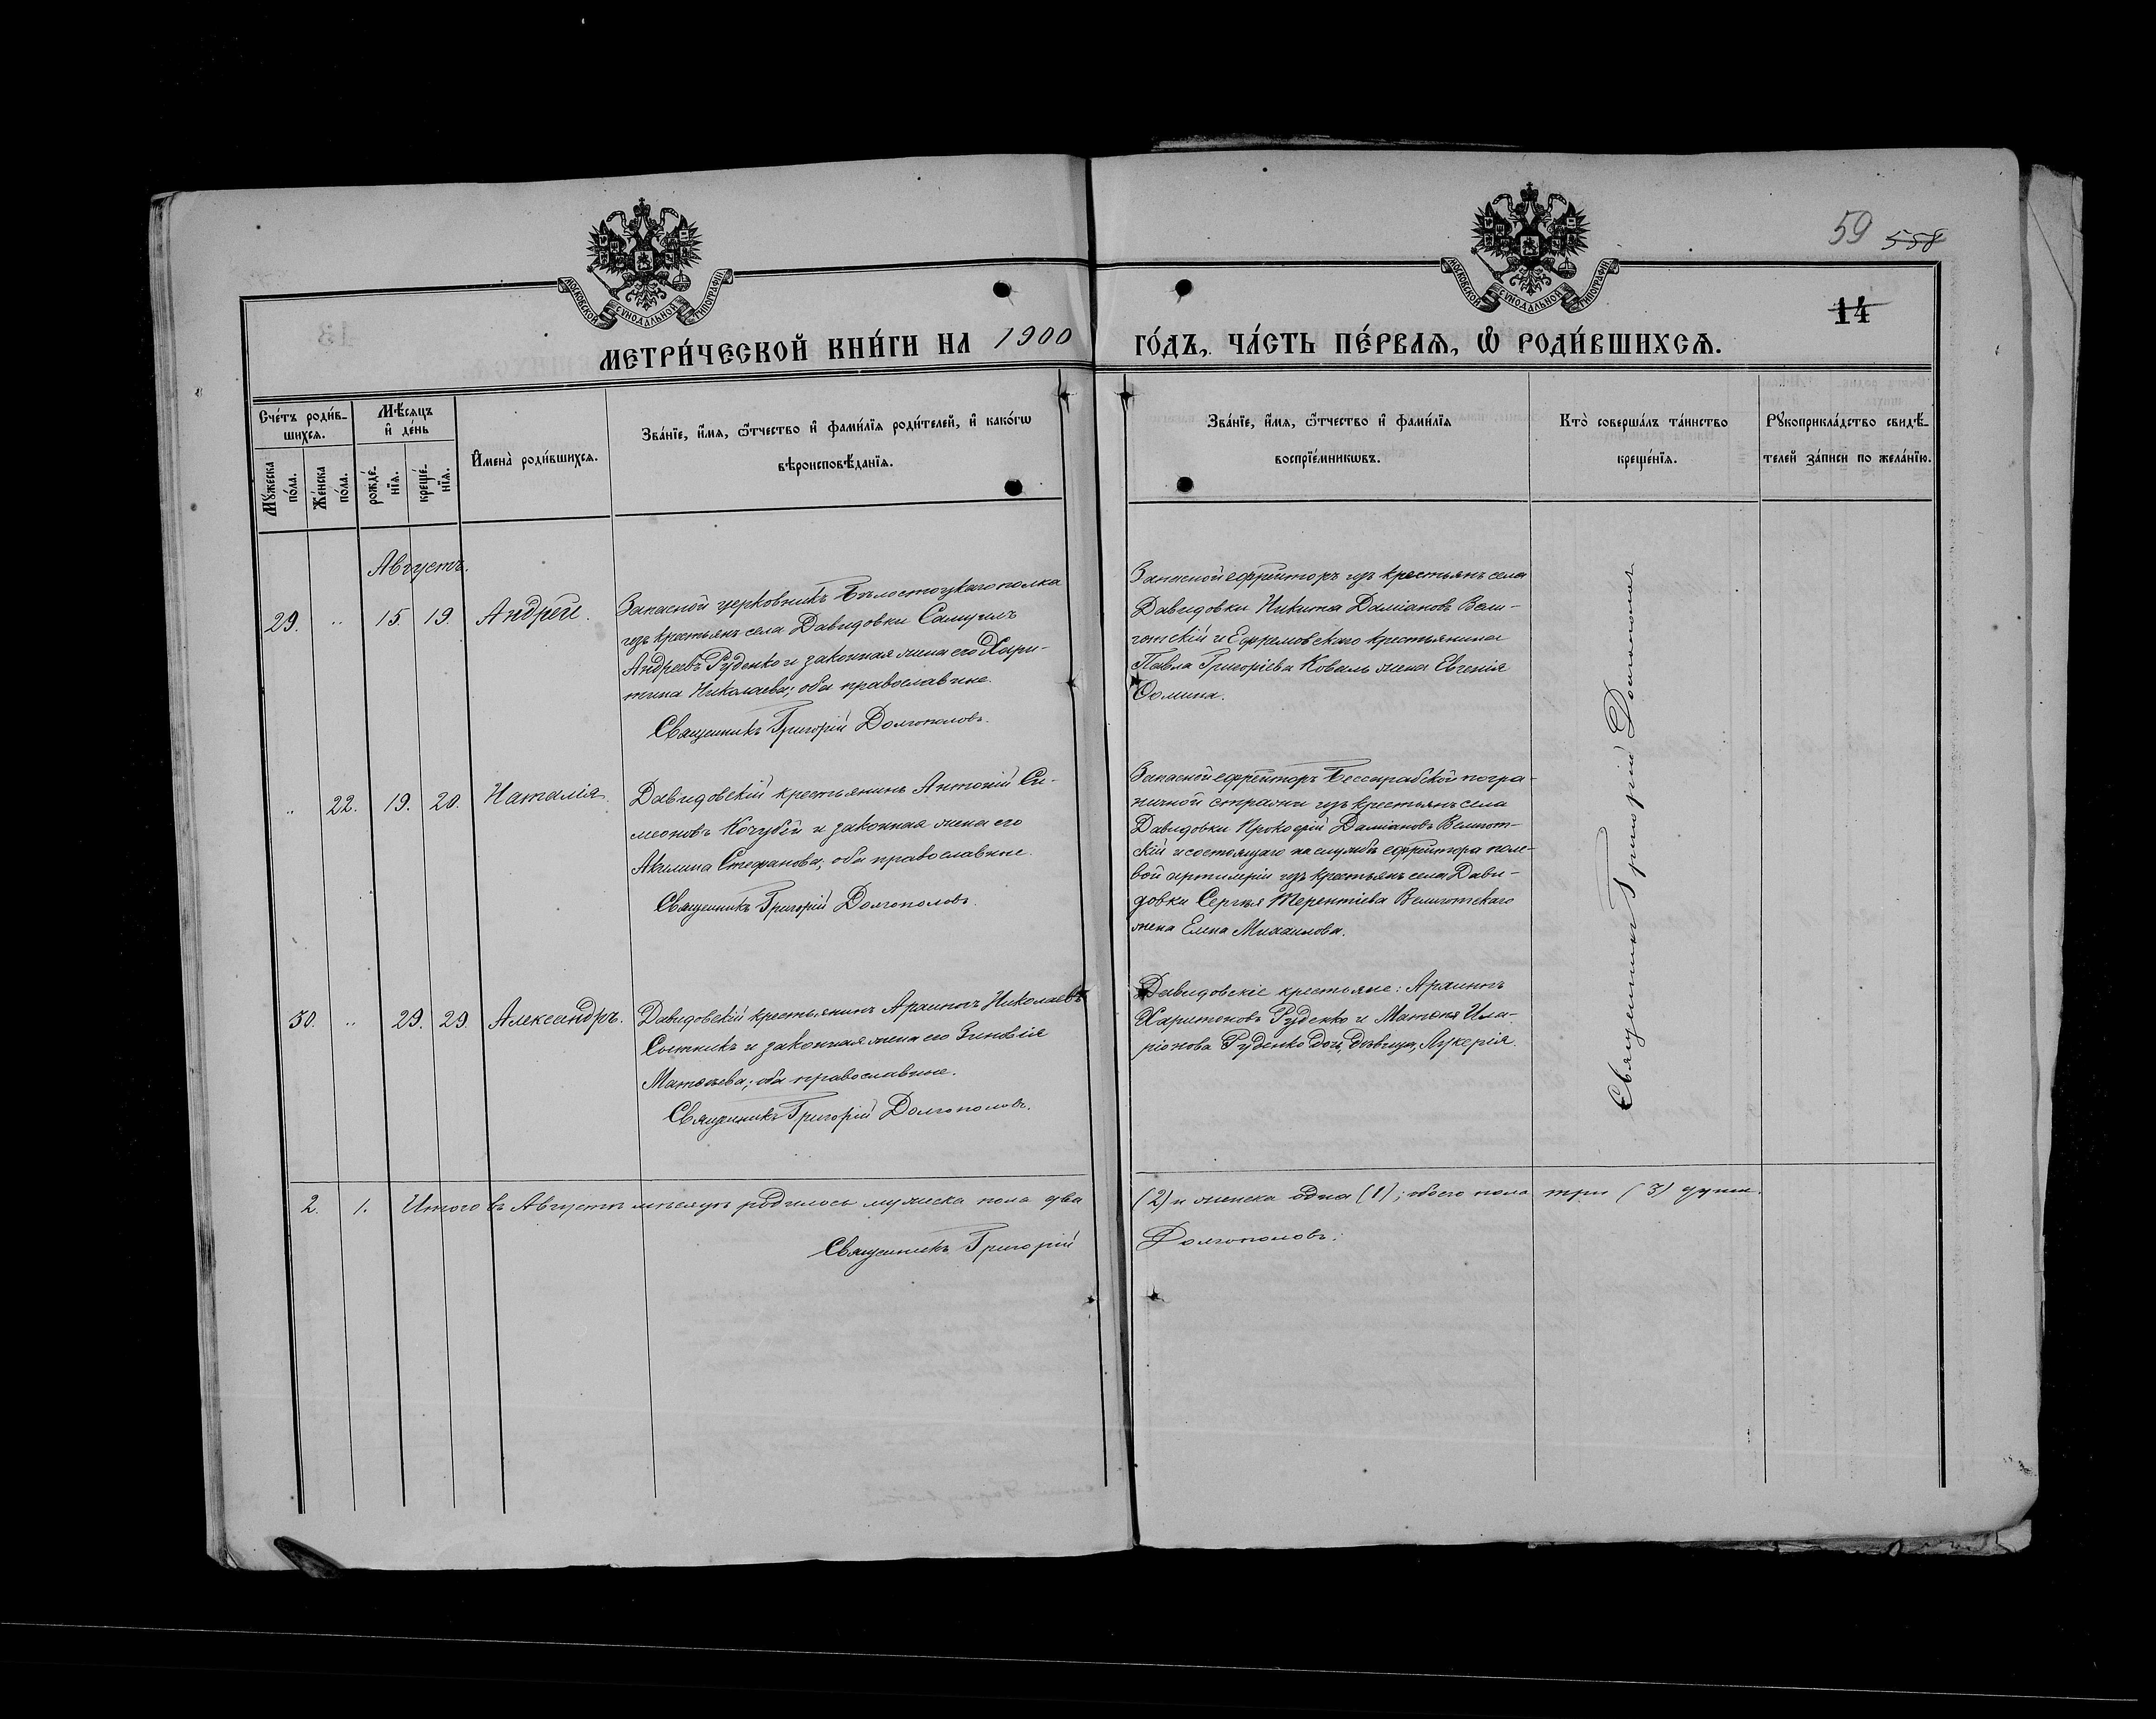 59 558
14
МОСКОВСКОЙ СѴНОДАЛЬНОЙ ТИПОГРАФІИ
МОСКОВСКОЙ СѴНОДАЛЬНОЙ ТИПОГРАФІИ
МЕТРИ́ЧЕСКОЙ КНИ́ГИ НА 1900 ГО́ДЪ, ЧА́СТЬ ПЕ́РВАѦ, Ѽ РОДИ́ВШИХСѦ.
Сче́тъ роди́в-
шихсѧ.
Мꙋ́жеска
по́ла.
Же́нска
по́ла.
Мѣ́сѧцъ
и҆ де́нь
рожде́-
нїѧ.
креще́-
нїѧ.
И҆мена̀ роди́вшихсѧ.
Зва́нїе, и҆́мѧ, ѻ҆́тчество и҆ фами́лїѧ роди́телей, и҆ како́гѡ
вѣроисповѣ́данїѧ.
Зва́нїе, и҆́мѧ, ѻ҆́тчество и҆ фами́лїѧ
воспрїе́мникѡвъ.
Кто̀ соверша́лъ та́инство
креще́нїѧ.
Рꙋкоприкла́дство свидѣ́-
телей за́писи по жела́нїю.
Августъ.
29. " 15. 19. Андрей.
Запасной церковникъ Бѣлостоцкаго полка
изъ крестьянъ села Давидовки Самуилъ
Андреевъ Руденко и законная жена его Хари-
тина Николаева; оба православные.
Священникъ Григорій Долгополовъ.
Запасной ефрейторъ изъ крестьянъ села
Давидовки Никита Даміановъ Вели-
готскій и Ефремовскаго крестьянина
Павла Григоріева Коваль жена Евгенія
Ѳомина.
" 22. 19. 20. Наталія.
Давидовскій крестьянинъ Антоній Си-
меоновъ Кочубей и законная жена его
Акилина Стефанова; оба православные.
Священникъ Григорій Долгополовъ.
Запасной ефрейторъ Бессарабской погра-
ничной стражи изъ крестьянъ села
Давидовки Прокофій Даміановъ Велигот-
скій и состоящаго на службѣ ефрейтора поле-
вой артилеріи изъ крестьянъ села Дави-
довки Сергѣя Терентіева Велиготскаго
жена Елена Михаилова.
30. " 29. 29. Александръ.
Давидовскій крестьянинъ Николаевъ
Сытникъ и законная жена его Зиновія
Матѳеева; оба православные.
Священникъ Григорій Долгополовъ.
Давидовскіе крестьяне:
Харитоновъ Руденко и Матѳея Ила-
ріонова Руденко дочь, дѣвица, Лукерія.
Священникъ Григорій Долгополовъ
2. 1. Итого въ Августѣ мѣсяцѣ родилось мужеска пола два (2) и женска одна (1); обоего пола три (3) души.
Священникъ Григорій Долгополовъ.